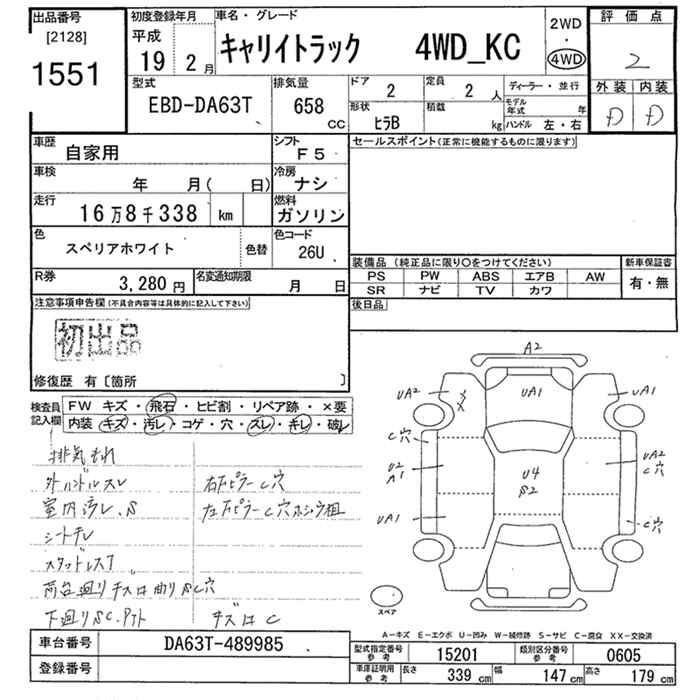 出品番号
[2128]
1551
初度登録年月
平成
19 2月
車名・グレード
キャリイトラック 4WD_KC
2WD
・
4WD
評価点
2
外装 内装
D D
型式
EBD-DA63T
排気量
658
CC
ドア
2
定員
2 人
形状
ヒラB
積載
kg
ディーラー・並行
モデル年式 年
ハンドル 左・右
車歴
自家用
シフト
F5
車検
年 月( 日)
冷房
ナシ
走行
16万8千338 km
燃料
ガソリン
色
スペリアホワイト
色替
色コード
26U
R券
3,280円
名変通知期限
月 日
セールスポイント(正常に機能するものに限ります)
装備品(純正品に限り〇をつけてください)
PS PW ABS エアB AW
SR ナビ TV カワ
新車保証書
有・無
後日品
注意事項申告欄(不具合内容等は具体的に記入して下さい)
初出品
修復歴 有〔箇所 〕
検査員記入欄
FW キズ・飛石・ヒビ割・リペア跡・×要
内装 キズ・汚レ・コゲ・穴・スレ・キレ・破レ
排気もれ
外ハンドルスレ
室内汚レ、S
シートキレ
スタッドレスT
荷台廻りキズロ曲りSC穴
下廻りSC、
キズロC
右下ピラーC穴
左下ピラーC穴
A2
UA2
UA1
UA1
C穴
U2
A1
U4
S2
UA2
C穴
UA1
C穴
スペア
A-キズ E-エクボ U-凹み W-補修跡 S-サビ C-腐食 XX-交換済
車台番号
DA63T-489985
登録番号
型式指定番号
参考
15201
類別区分番号
参考
0605
車庫証明用
参考
長さ
339 cm
幅
147 cm
高さ
179 cm